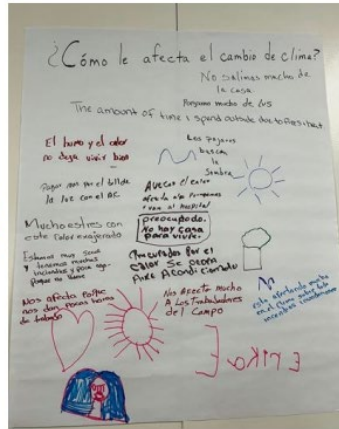 ¿Cómo le afecta el cambio de clima?
No salimos mucho de
la casa
Pagamos mucho de luz
The amount of time I spend outside due to fires, heat
El humo y el calor
no deja vivir bien
Los pajaros
buscan
la
sombra
Pagar mas por el bill de
la luz con el AC.
A veces el calor
afecta a los
van al Hospital
Mucho estres con
este calor exajerado
preocupado.
No hay casa
para vivir.
Estamos muy
y tenemos muchos
incendios y poca agua
porque no llueve
Preocupados por el
calor Se
Aire Acondicionado
Nos afecta
nos dan pocas horas
de trabajo
Nos Afecta mucho
A Los Trabajadores
del Campo
esta afectando mucho
en el clima sobre todo
nuestros
Erika